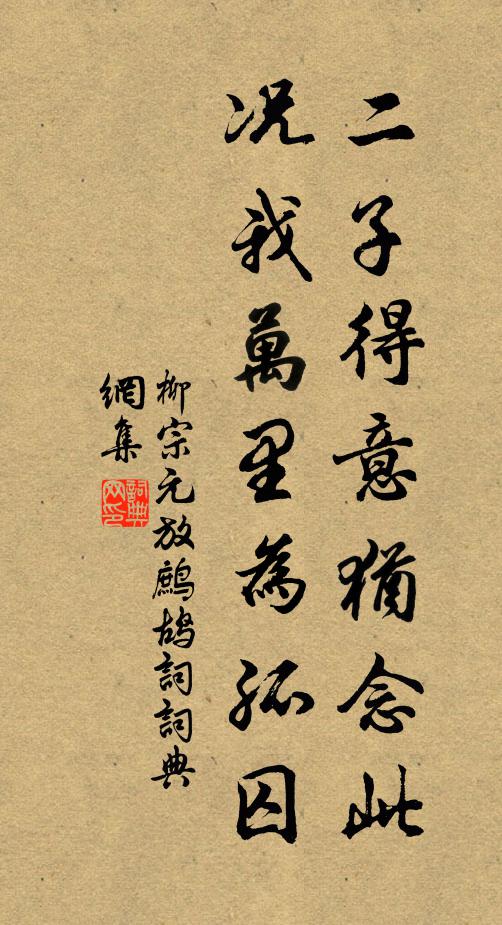 二子得意猶念此
况我萬里為孤囚
柳宗元放鷓鴣詞詞典
網集
詞典網印